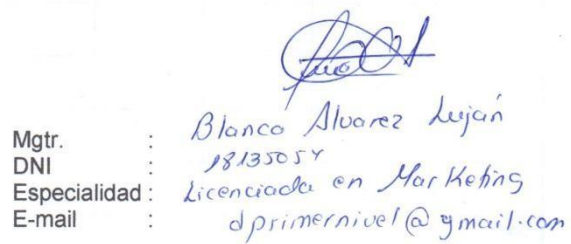 Mgtr. : Blanca Alvarez Luján
DNI : 18135054
Especialidad : Licenciada en Marketing
E-mail : dprimernivel@gmail.com